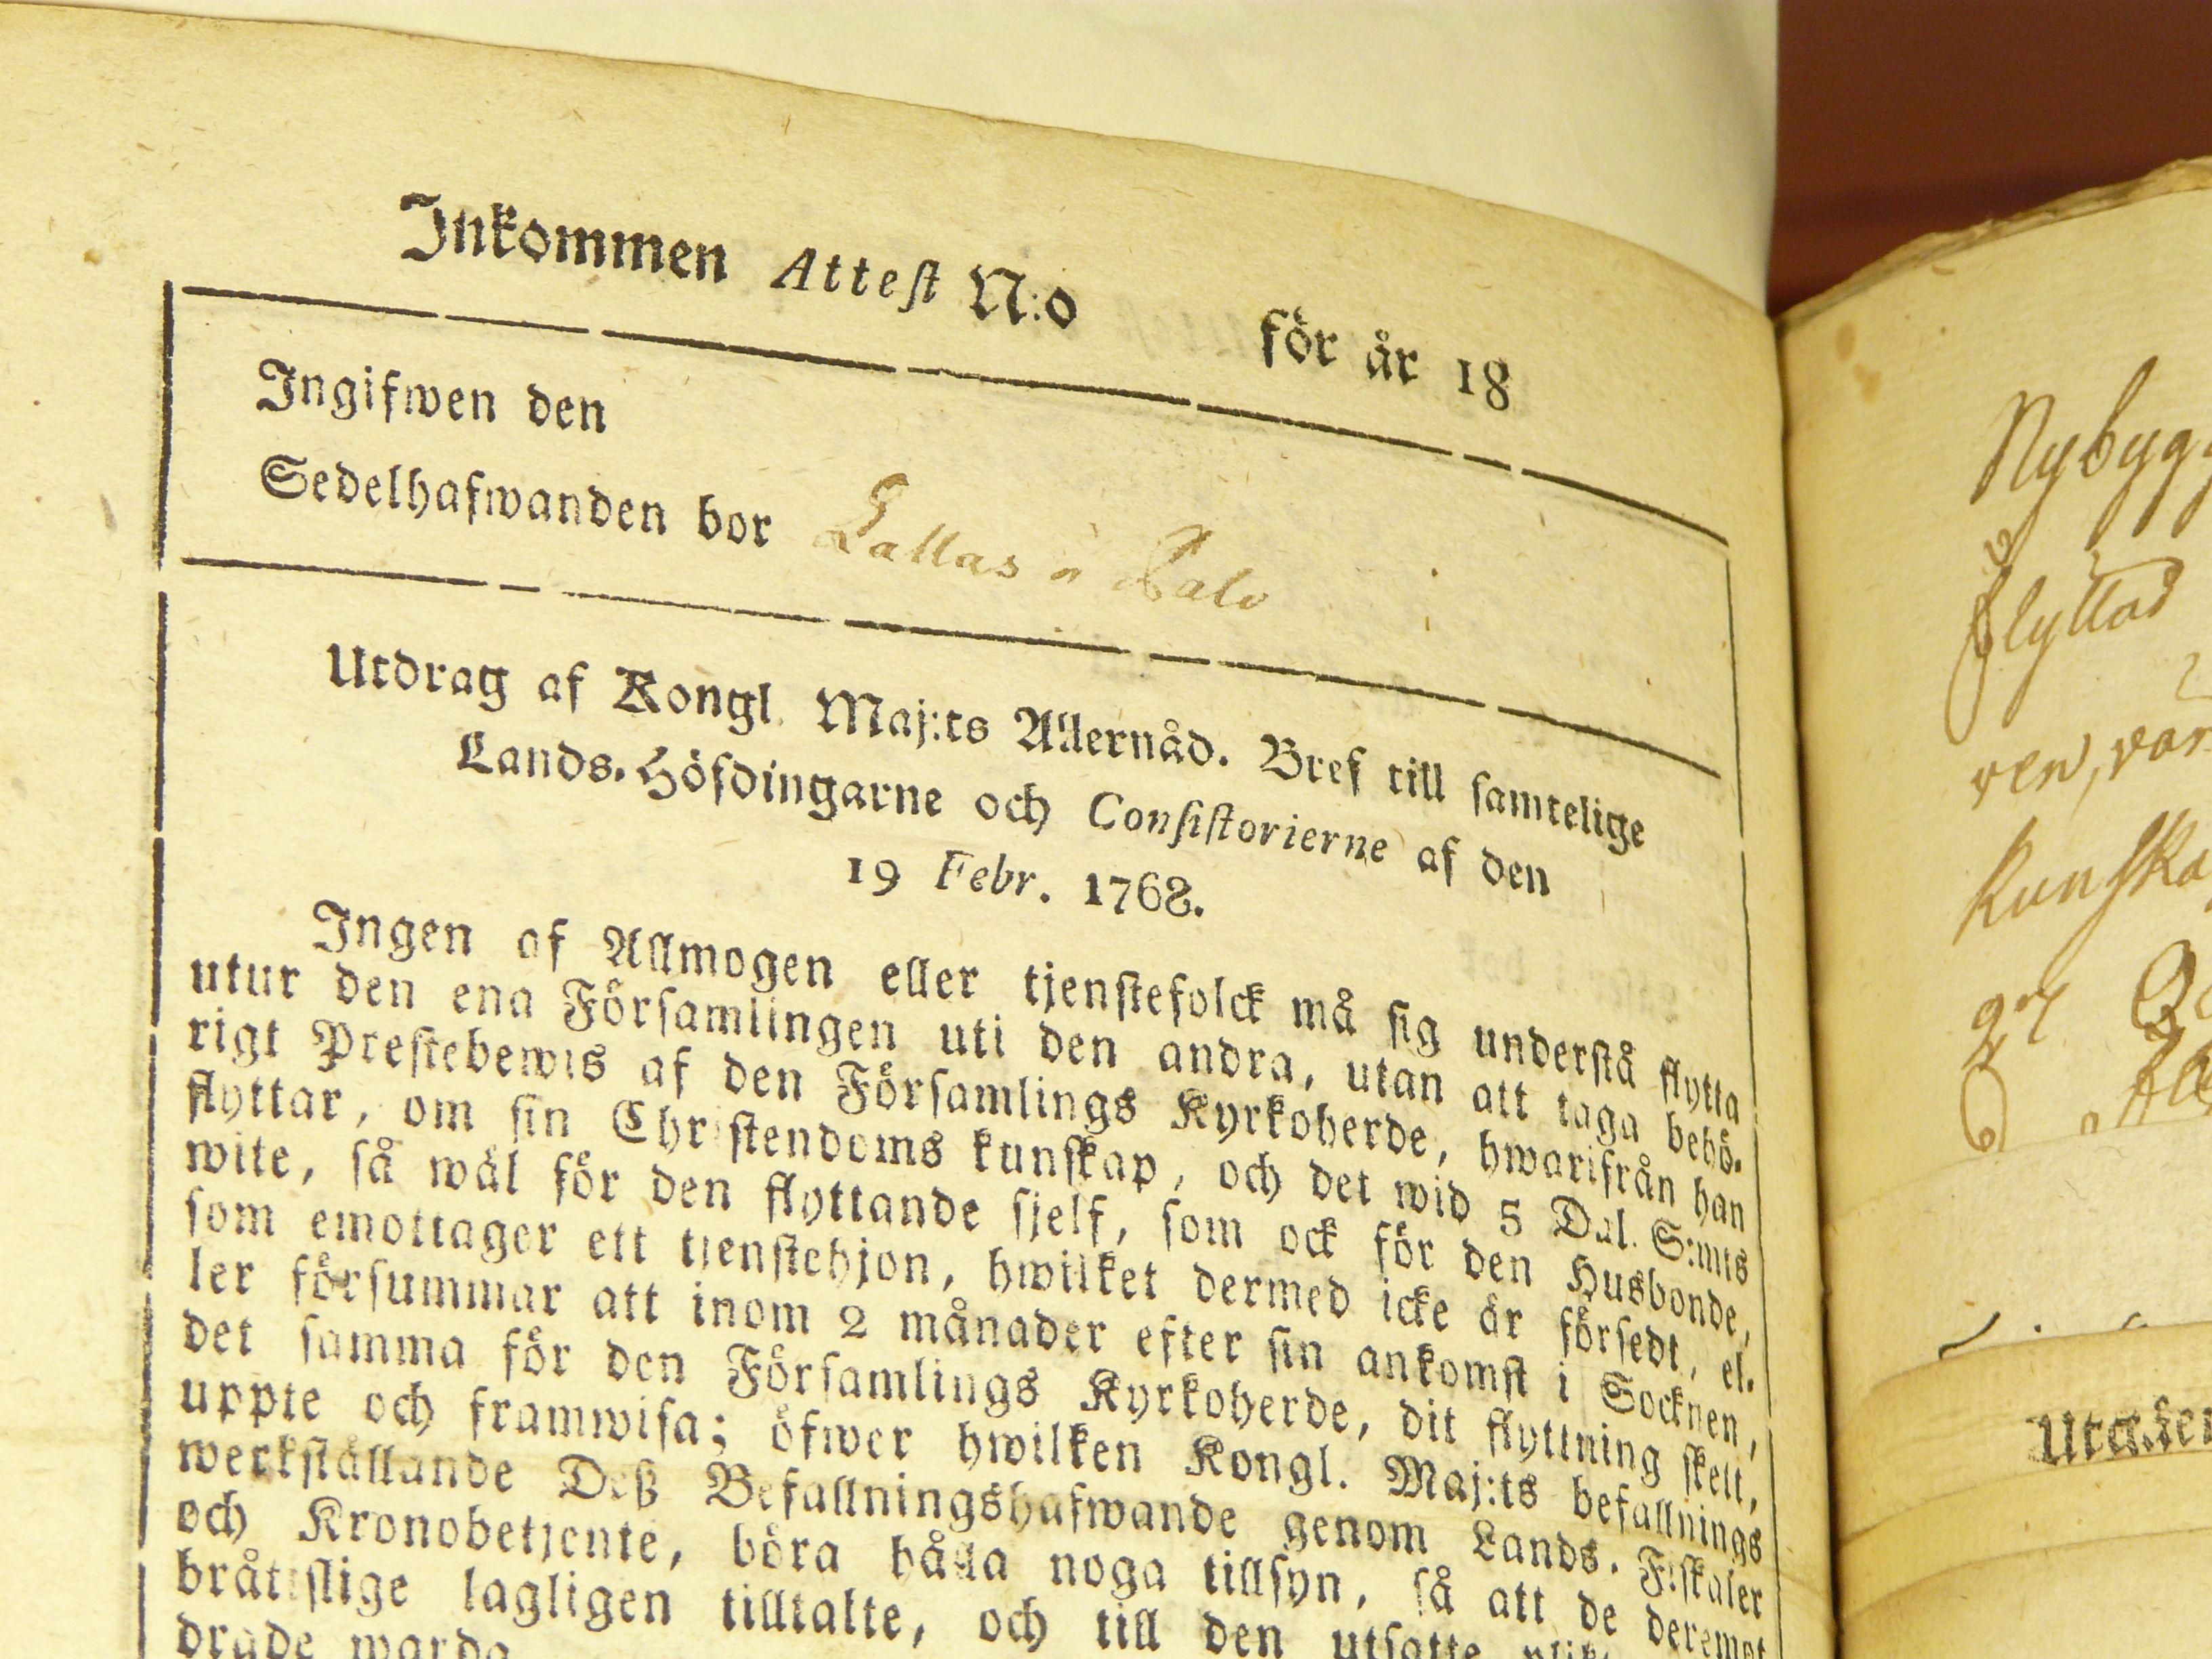 Inkommen Attest N:o för år 18
Ingifwen den
Sedelhafwanden bor
Utdrag af Kongl. Maj:ts Allernåd. Bref till samtelige
Lands-Höfdingarne och Consistorierne af den
19 Febr. 1768.
Ingen af Allmogen eller tjenstefolck må sig understå flytta
utur den ena Församlingen uti den andra, utan att taga behö-
rigt Prestebewis af den Församlings Kyrkoherde, hwarifrån han
flyttar, om sin Christendoms kunskap, och det wid 5 Dal. S:mts
wite, så wäl för den flyttande sjelf, som ock för den Husbonde,
som emottager ett tjenstehjon, hwilket dermed icke är försedt, el-
ler försummar att inom 2 månader efter sin ankomst i Socknen,
det samma för den Församlings Kyrkoherde, dit flyttning skett,
uppte och framwisa; öfwer hwilken Kongl. Maj:ts befallnings
werkställande Deß Befallningshafwande genom Lands-Fiskaler
och Kronobetjente, böra hålla noga tillsyn, så att de deremot
bråttslige lagligen tilltalte, och till den utsatte
drade warda
Nybygg
flyttad
ren, var
kunska